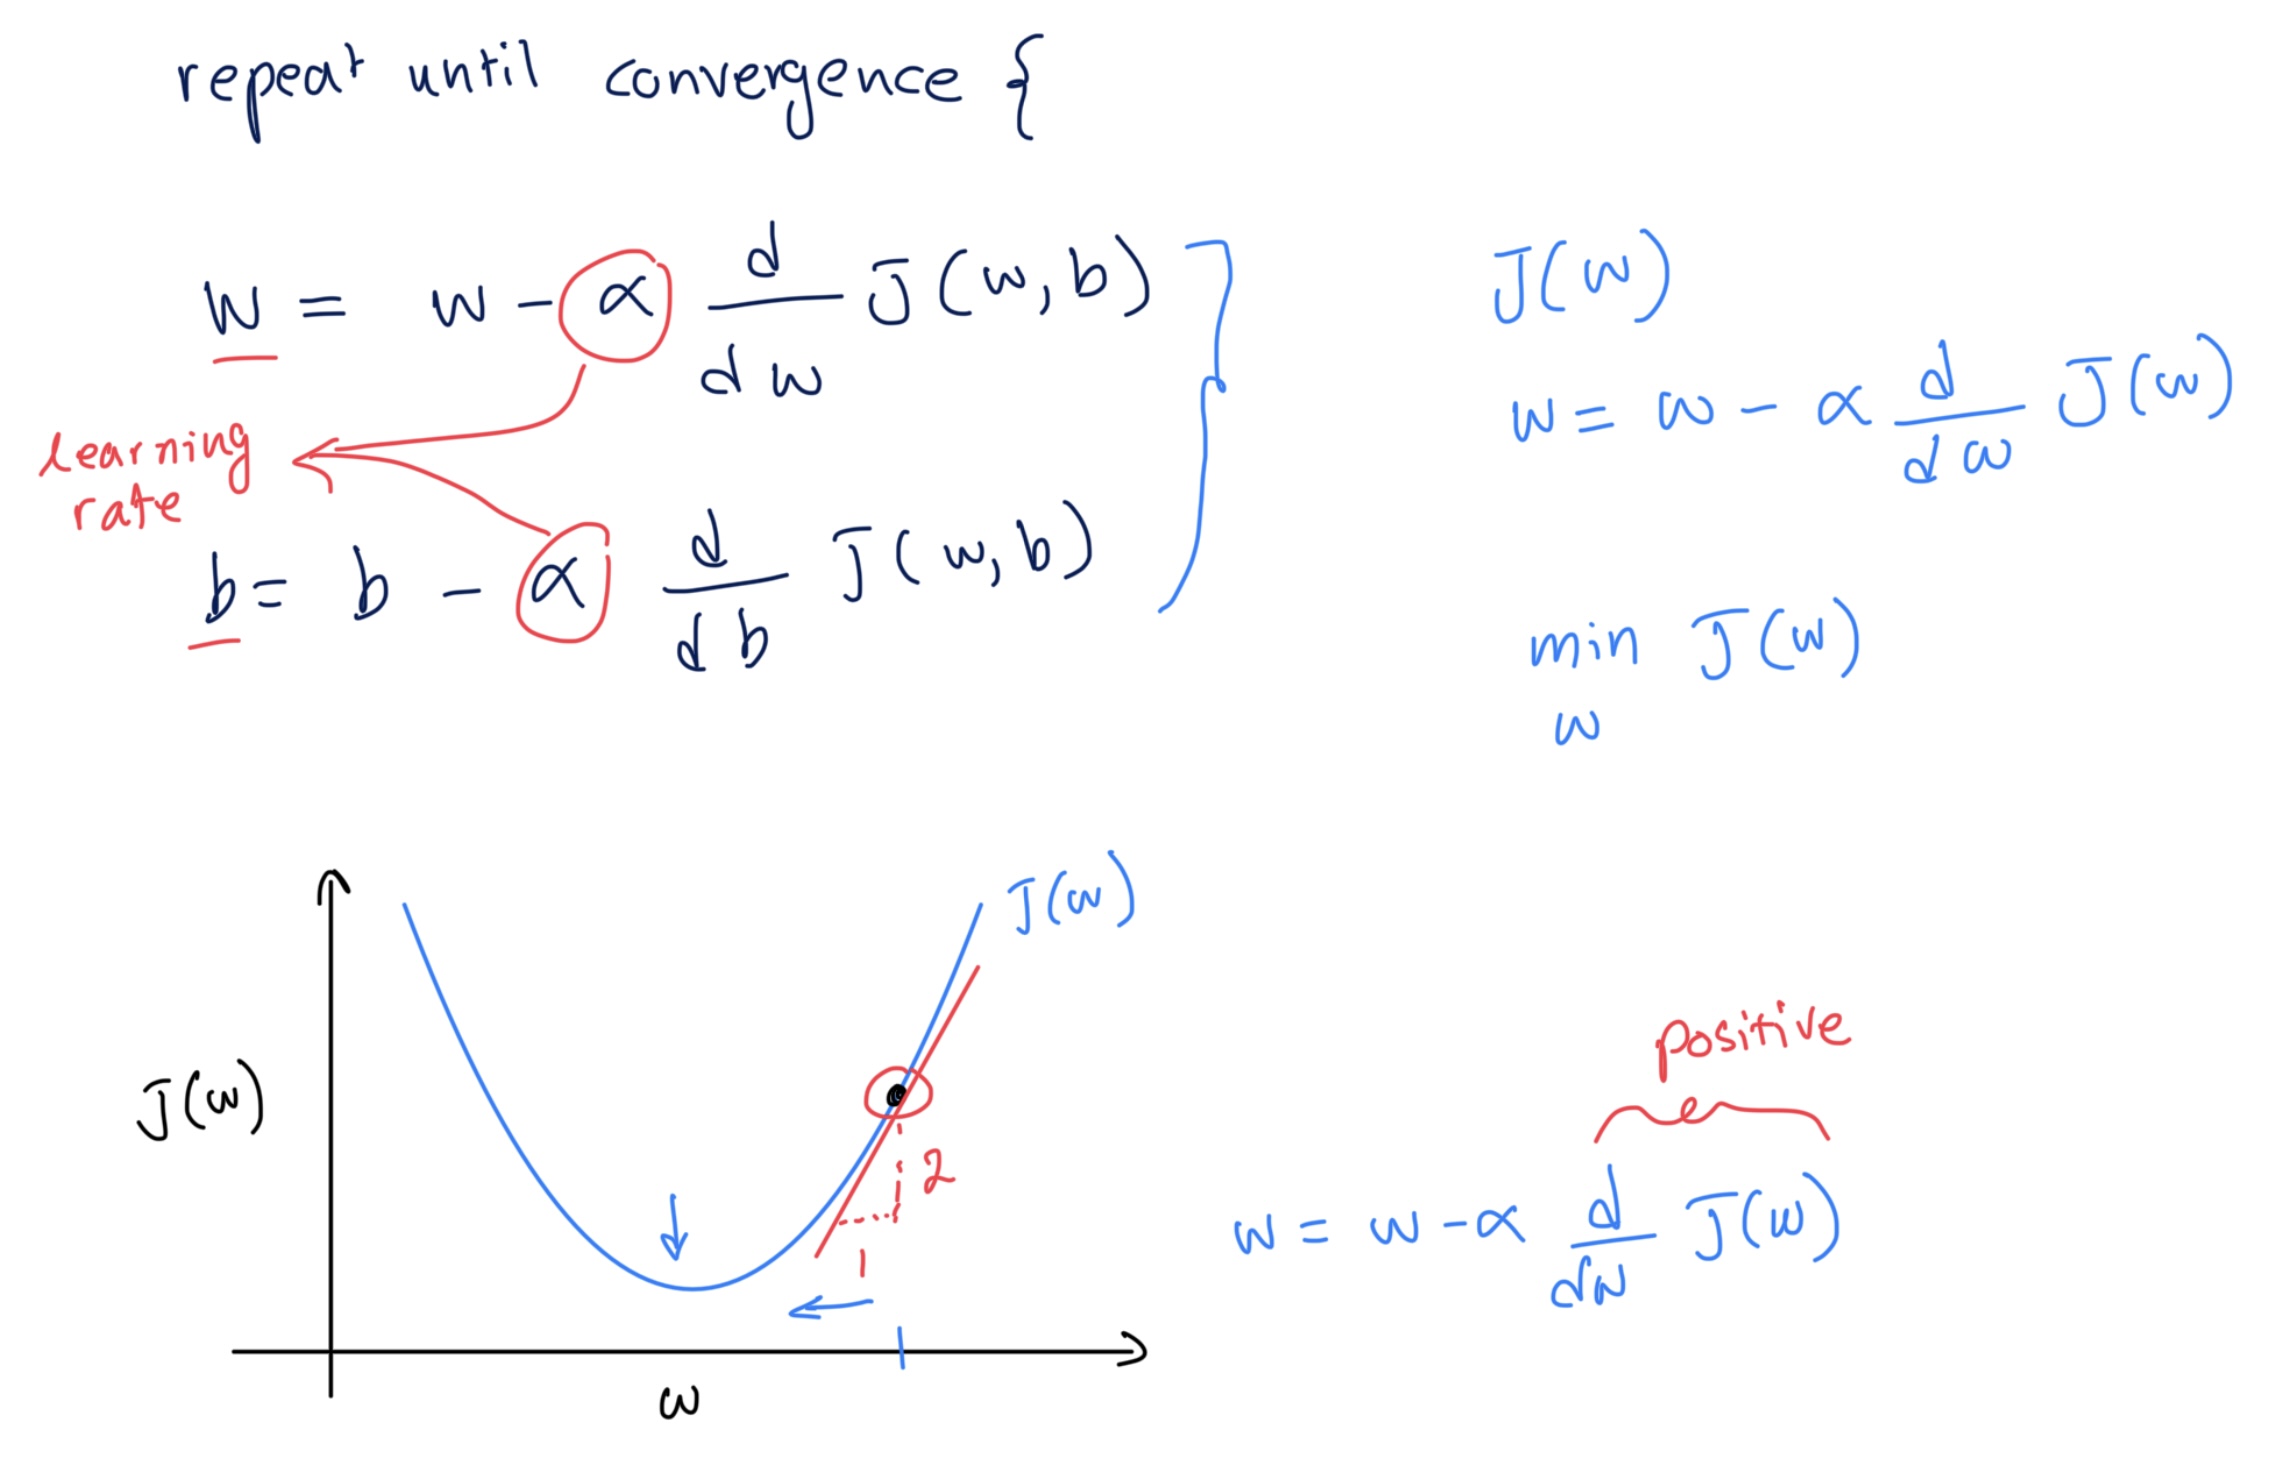 repeat until convergence {
w = w - α d/dw J(w,b)
learning
rate
b = b - α d/db J(w,b)
J(w)
w = w - α d/dw J(w)
min J(w)
w
J(w)
J(w)
2
1
w
positive
w = w - α d/dw J(w)